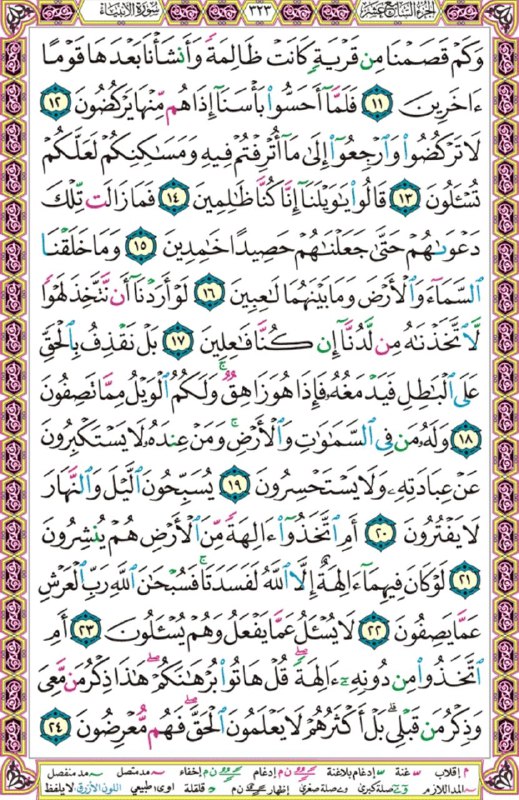 الجزء السابع عشر ٣٢٣ سورة الأنبياء
وَكَمْ قَصَمْنَا مِن قَرْيَةٍ كَانَتْ ظَالِمَةً وَأَنشَأْنَا بَعْدَهَا قَوْمًا
ءَاخَرِينَ ١١ فَلَمَّا أَحَسُّوا۟ بَأْسَنَا إِذَا هُم مِّنْهَا يَرْكُضُونَ ١٢
لَا تَرْكُضُوا۟ وَٱرْجِعُوٓا۟ إِلَىٰ مَآ أُتْرِفْتُمْ فِيهِ وَمَسَٰكِنِكُمْ لَعَلَّكُمْ
تُسْـَٔلُونَ ١٣ قَالُوا۟ يَٰوَيْلَنَآ إِنَّا كُنَّا ظَٰلِمِينَ ١٤ فَمَا زَالَت تِّلْكَ
دَعْوَىٰهُمْ حَتَّىٰ جَعَلْنَٰهُمْ حَصِيدًا خَٰمِدِينَ ١٥ وَمَا خَلَقْنَا
ٱلسَّمَآءَ وَٱلْأَرْضَ وَمَا بَيْنَهُمَا لَٰعِبِينَ ١٦ لَوْ أَرَدْنَآ أَن نَّتَّخِذَ لَهْوًا
لَّٱتَّخَذْنَٰهُ مِن لَّدُنَّآ إِن كُنَّا فَٰعِلِينَ ١٧ بَلْ نَقْذِفُ بِٱلْحَقِّ
عَلَى ٱلْبَٰطِلِ فَيَدْمَغُهُۥ فَإِذَا هُوَ زَاهِقٌ ۚ وَلَكُمُ ٱلْوَيْلُ مِمَّا تَصِفُونَ
١٨ وَلَهُۥ مَن فِى ٱلسَّمَٰوَٰتِ وَٱلْأَرْضِ ۚ وَمَنْ عِندَهُۥ لَا يَسْتَكْبِرُونَ
عَنْ عِبَادَتِهِۦ وَلَا يَسْتَحْسِرُونَ ١٩ يُسَبِّحُونَ ٱلَّيْلَ وَٱلنَّهَارَ
لَا يَفْتُرُونَ ٢٠ أَمِ ٱتَّخَذُوٓا۟ ءَالِهَةً مِّنَ ٱلْأَرْضِ هُمْ يُنشِرُونَ
٢١ لَوْ كَانَ فِيهِمَآ ءَالِهَةٌ إِلَّا ٱللَّهُ لَفَسَدَتَا ۚ فَسُبْحَٰنَ ٱللَّهِ رَبِّ ٱلْعَرْشِ
عَمَّا يَصِفُونَ ٢٢ لَا يُسْـَٔلُ عَمَّا يَفْعَلُ وَهُمْ يُسْـَٔلُونَ ٢٣ أَمِ
ٱتَّخَذُوا۟ مِن دُونِهِۦٓ ءَالِهَةً ۖ قُلْ هَاتُوا۟ بُرْهَٰنَكُمْ ۖ هَٰذَا ذِكْرُ مَن مَّعِىَ
وَذِكْرُ مَن قَبْلِى ۗ بَلْ أَكْثَرُهُمْ لَا يَعْلَمُونَ ٱلْحَقَّ ۖ فَهُم مُّعْرِضُونَ ٢٤
م إقلاب غنة إدغام بلاغنة ن م إدغام ن م إخفاء مد متصل مد منفصل
المد اللازم صلة كبرى صلة صغرى إظهار ن م قلقلة اوى: طبيعي اللون الأزرق لا يلفظ